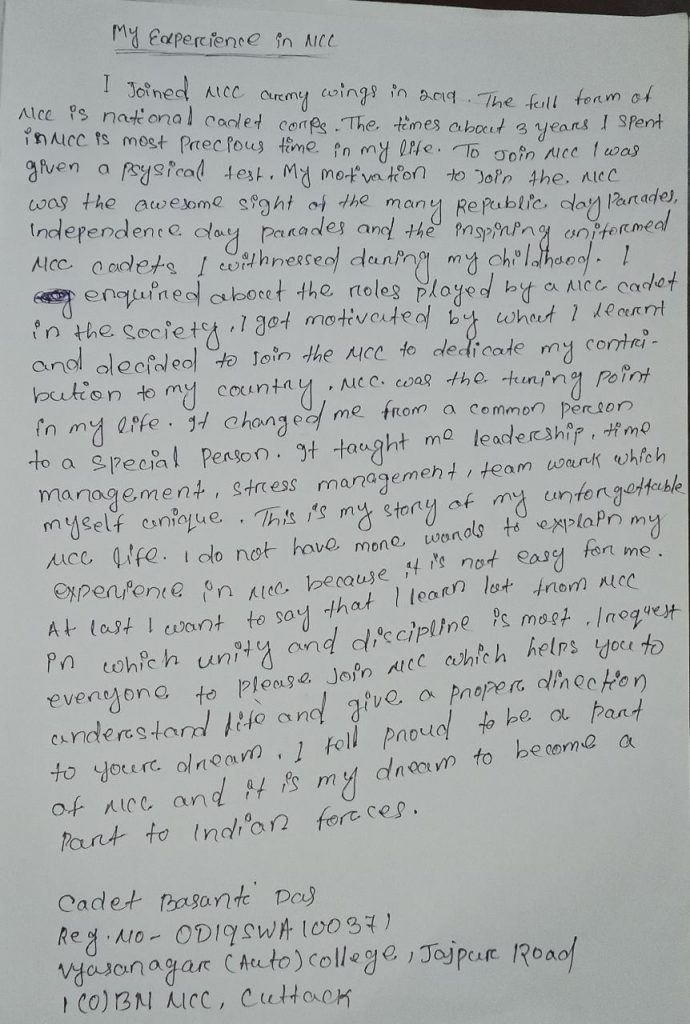 My Expercience in NCC
I Joined NCC arcmy wings in 2019. The full form of
NCC is national cadet corps. The times about 3 years I spent
in NCC is most precious time in my life. To Join NCC I was
given a psysical test. My motivation to Join the NCC
was the awesome sight of the many Republic day Parades,
Independence day parades and the inspiring uniformed
NCC cadets I withnessed during my childhood. I
enquired about the roles played by a NCC cadet
in the society, I got motivated by what I learnt
and decided to Join the NCC to dedicate my contri-
bution to my country. NCC was the tuning point
in my life. It changed me from a common person
to a special person. It taught me leadership, time
management, stress management, team wark which
myself unique. This is my story of my unforgettable
NCC life. I do not have more words to explain my
experience in NCC because it is not easy for me.
At last I want to say that I learn lot from NCC
in which unity and disccipline is most. I request
everyone to please Join NCC which helps you to
understand life and give a proper direction
to youre dream. I fell proud to be a part
of NCC and it is my dream to become a
part to Indian forces.
Cadet Basanti Das
Reg. No- OD19SWA100371
Vyasanagar (Auto) college, Jajpur Road
1 (O) BN NCC, Cuttack